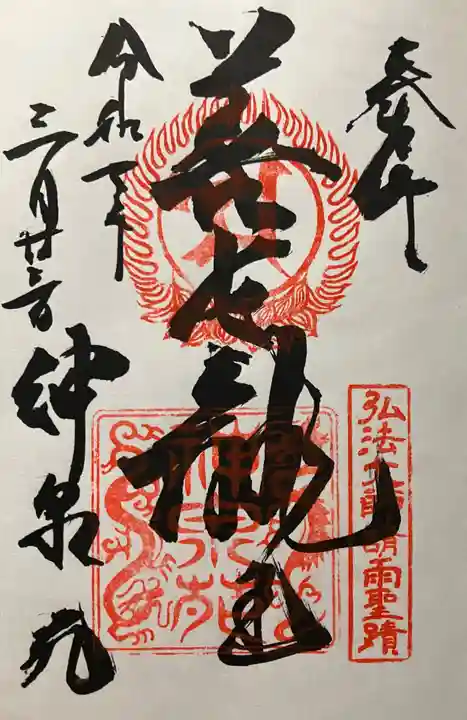 奉拝
弘法大師請雨聖蹟
善女龍王
令和
三月廿三日
神泉苑
神泉苑